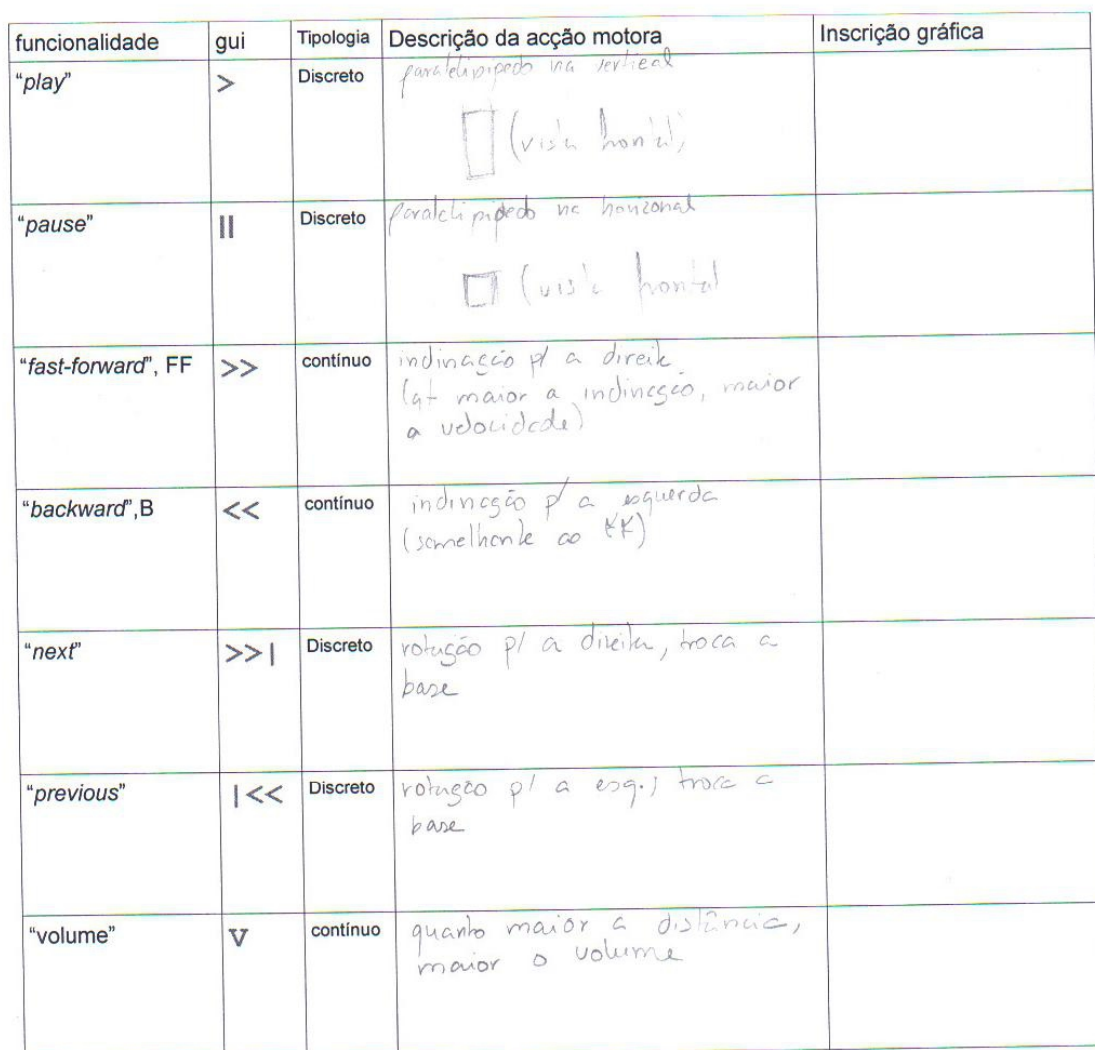 funcionalidade gui Tipologia Descrição da acção motora Inscrição gráfica
"play" > Discreto paralelipipedo na vertical
(vista frontal)
"pause" || Discreto paralelipipedo na horizonal
(vista frontal
"fast-forward", FF >> contínuo inclinação p/ a direita
(qt maior a inclinação, maior
a velocidade)
"backward",B << contínuo inclinação p/ a esquerda
(semelhante ao FF)
"next" >>| Discreto rotação p/ a direita, troca a
base
"previous" |<< Discreto rotação p/ a esq., troca a
base
"volume" V contínuo quanto maior a distância,
maior o volume